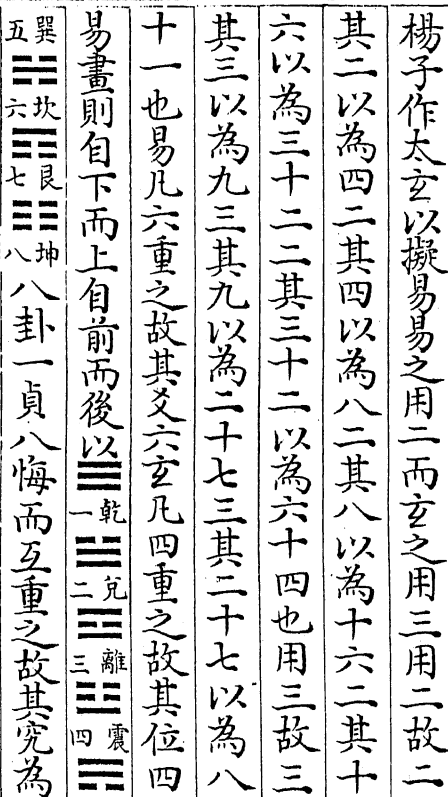 楊子作太玄以擬易易之用二而玄之用三用二故二
其二以為四二其四以為八二其八以為十六二其十
六以為三十二二其三十二以為六十四也用三故三
其三以為九三其九以為二十七三其二十七以為八
十一也易凡六重之故其爻六玄凡四重之故其位四
易畫則自下而上自前而後以☰乾一☱兌二☲離三☳震四☴
巽五☵坎六☶艮七☷坤八八卦一貞八悔而互重之故其究為